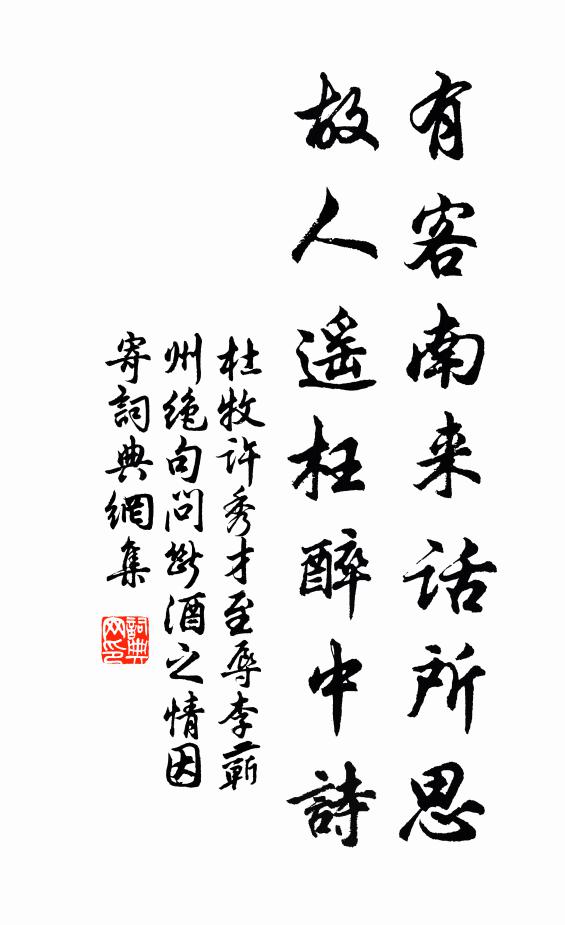 有客南来话所思
故人遥枉醉中詩
杜牧许秀才至辱李蘄
州绝句问断酒之情因
寄詞典網集
詞典网印